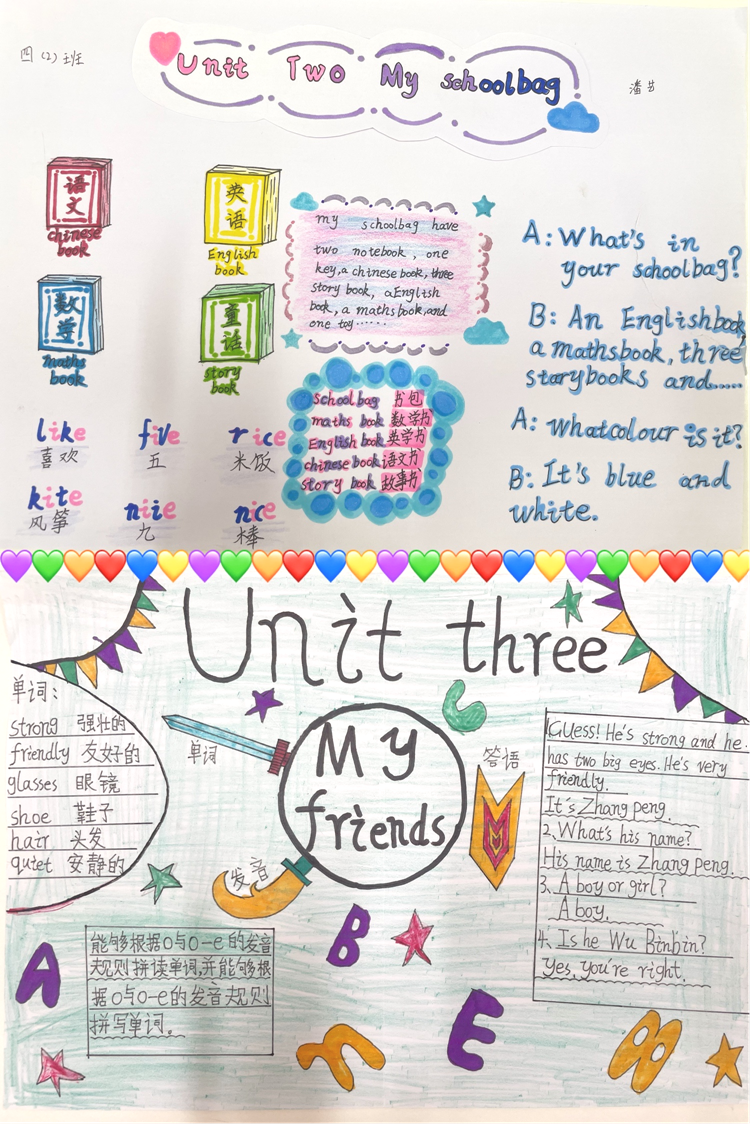 四(2)班
Unit Two My schoolbag
语文
chinese
book
英语
English
book
数学
maths
book
童话
story
book
my schoolbag have
two notebook, one
key, a chinese book, three
story book, aEnglish
book, a maths book, and
one toy......
schoolbag 书包
maths book 数学书
English book 英学书
chinese book 语文书
story book 故事书
like
喜欢
five
五
rice
米饭
kite
风筝
nine
九
nice
棒
A: What's in
your schoolbag?
B: An Englishbook,
a mathsbook, three
storybooks and......
A: Whatcolour is it?
B: It's blue and
white.
Unit three
My
friends
单词:
strong 强壮的
friendly 友好的
glasses 眼镜
shoe 鞋子
hair 头发
quiet 安静的
单词
发音
答语
能够根据o与o-e的发音
规则拼读单词,并能够根
据o与o-e的发音规则
拼写单词。
Guess! He's strong and he
has two big eyes. He's very
friendly.
It's Zhang peng.
2. What's his name?
His name is Zhang Peng.
3. A boy or girl?
A boy.
4. Is he Wu Binbin?
Yes, you're right.
A
B
E